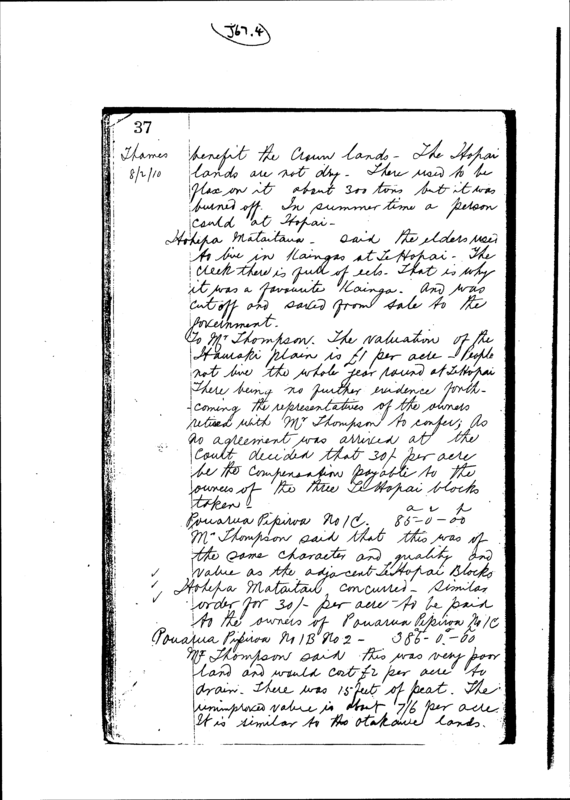 J67.4
37
Thames
8/2/10
benefit the Crown lands - The Hopai
lands are not dry - There used to be
flax on it about 300 tons but it was
burned off. In summer time a person
could at Hopai -
Hohepa Mataitaua - said the elders used
to live in Kaingas at Te Hopai - The
creek there is full of eels - That is why
it was a favourite Kainga. And was
cut off and saved from sale to the
Government.
To Mr Thompson. The valuation of the
Hauraki plain is £1 per acre - People
not live the whole year round at Te Hopai
There being no further evidence forth-
-coming the representatives of the owners
retired with Mr Thompson to confer; As
no agreement was arrived at the
Court decided that 30/- per acre
be the compensation payable to the
owners of the three Te Hopai blocks
taken -
a r p
Pouarua Pipiroa No 1C. 85-0-00
Mr Thompson said that this was of
the same character and quality and
value as the adjacent Te Hopai Blocks
Hohepa Mataitau concurred - Similar
order for 30/- per acre to be paid
to the owners of Pouarua Pipiroa No 1C
Pouarua Pipiroa No 1B No 2 - 385-0-00
Mr Thompson said this was very poor
land and would cost £2 per acre to
drain. There was 15 feet of peat. The
unimproved value is about 7/6 per acre.
It is similar to the Otakawe lands.